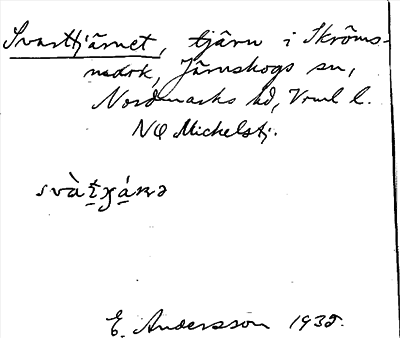 Svarttjärnet, tjärn i Skröms-
mark, Järnskogs sn,
Nordmarks hd, Vrml l.
NO Michelstj.
E. Andersson 1935.